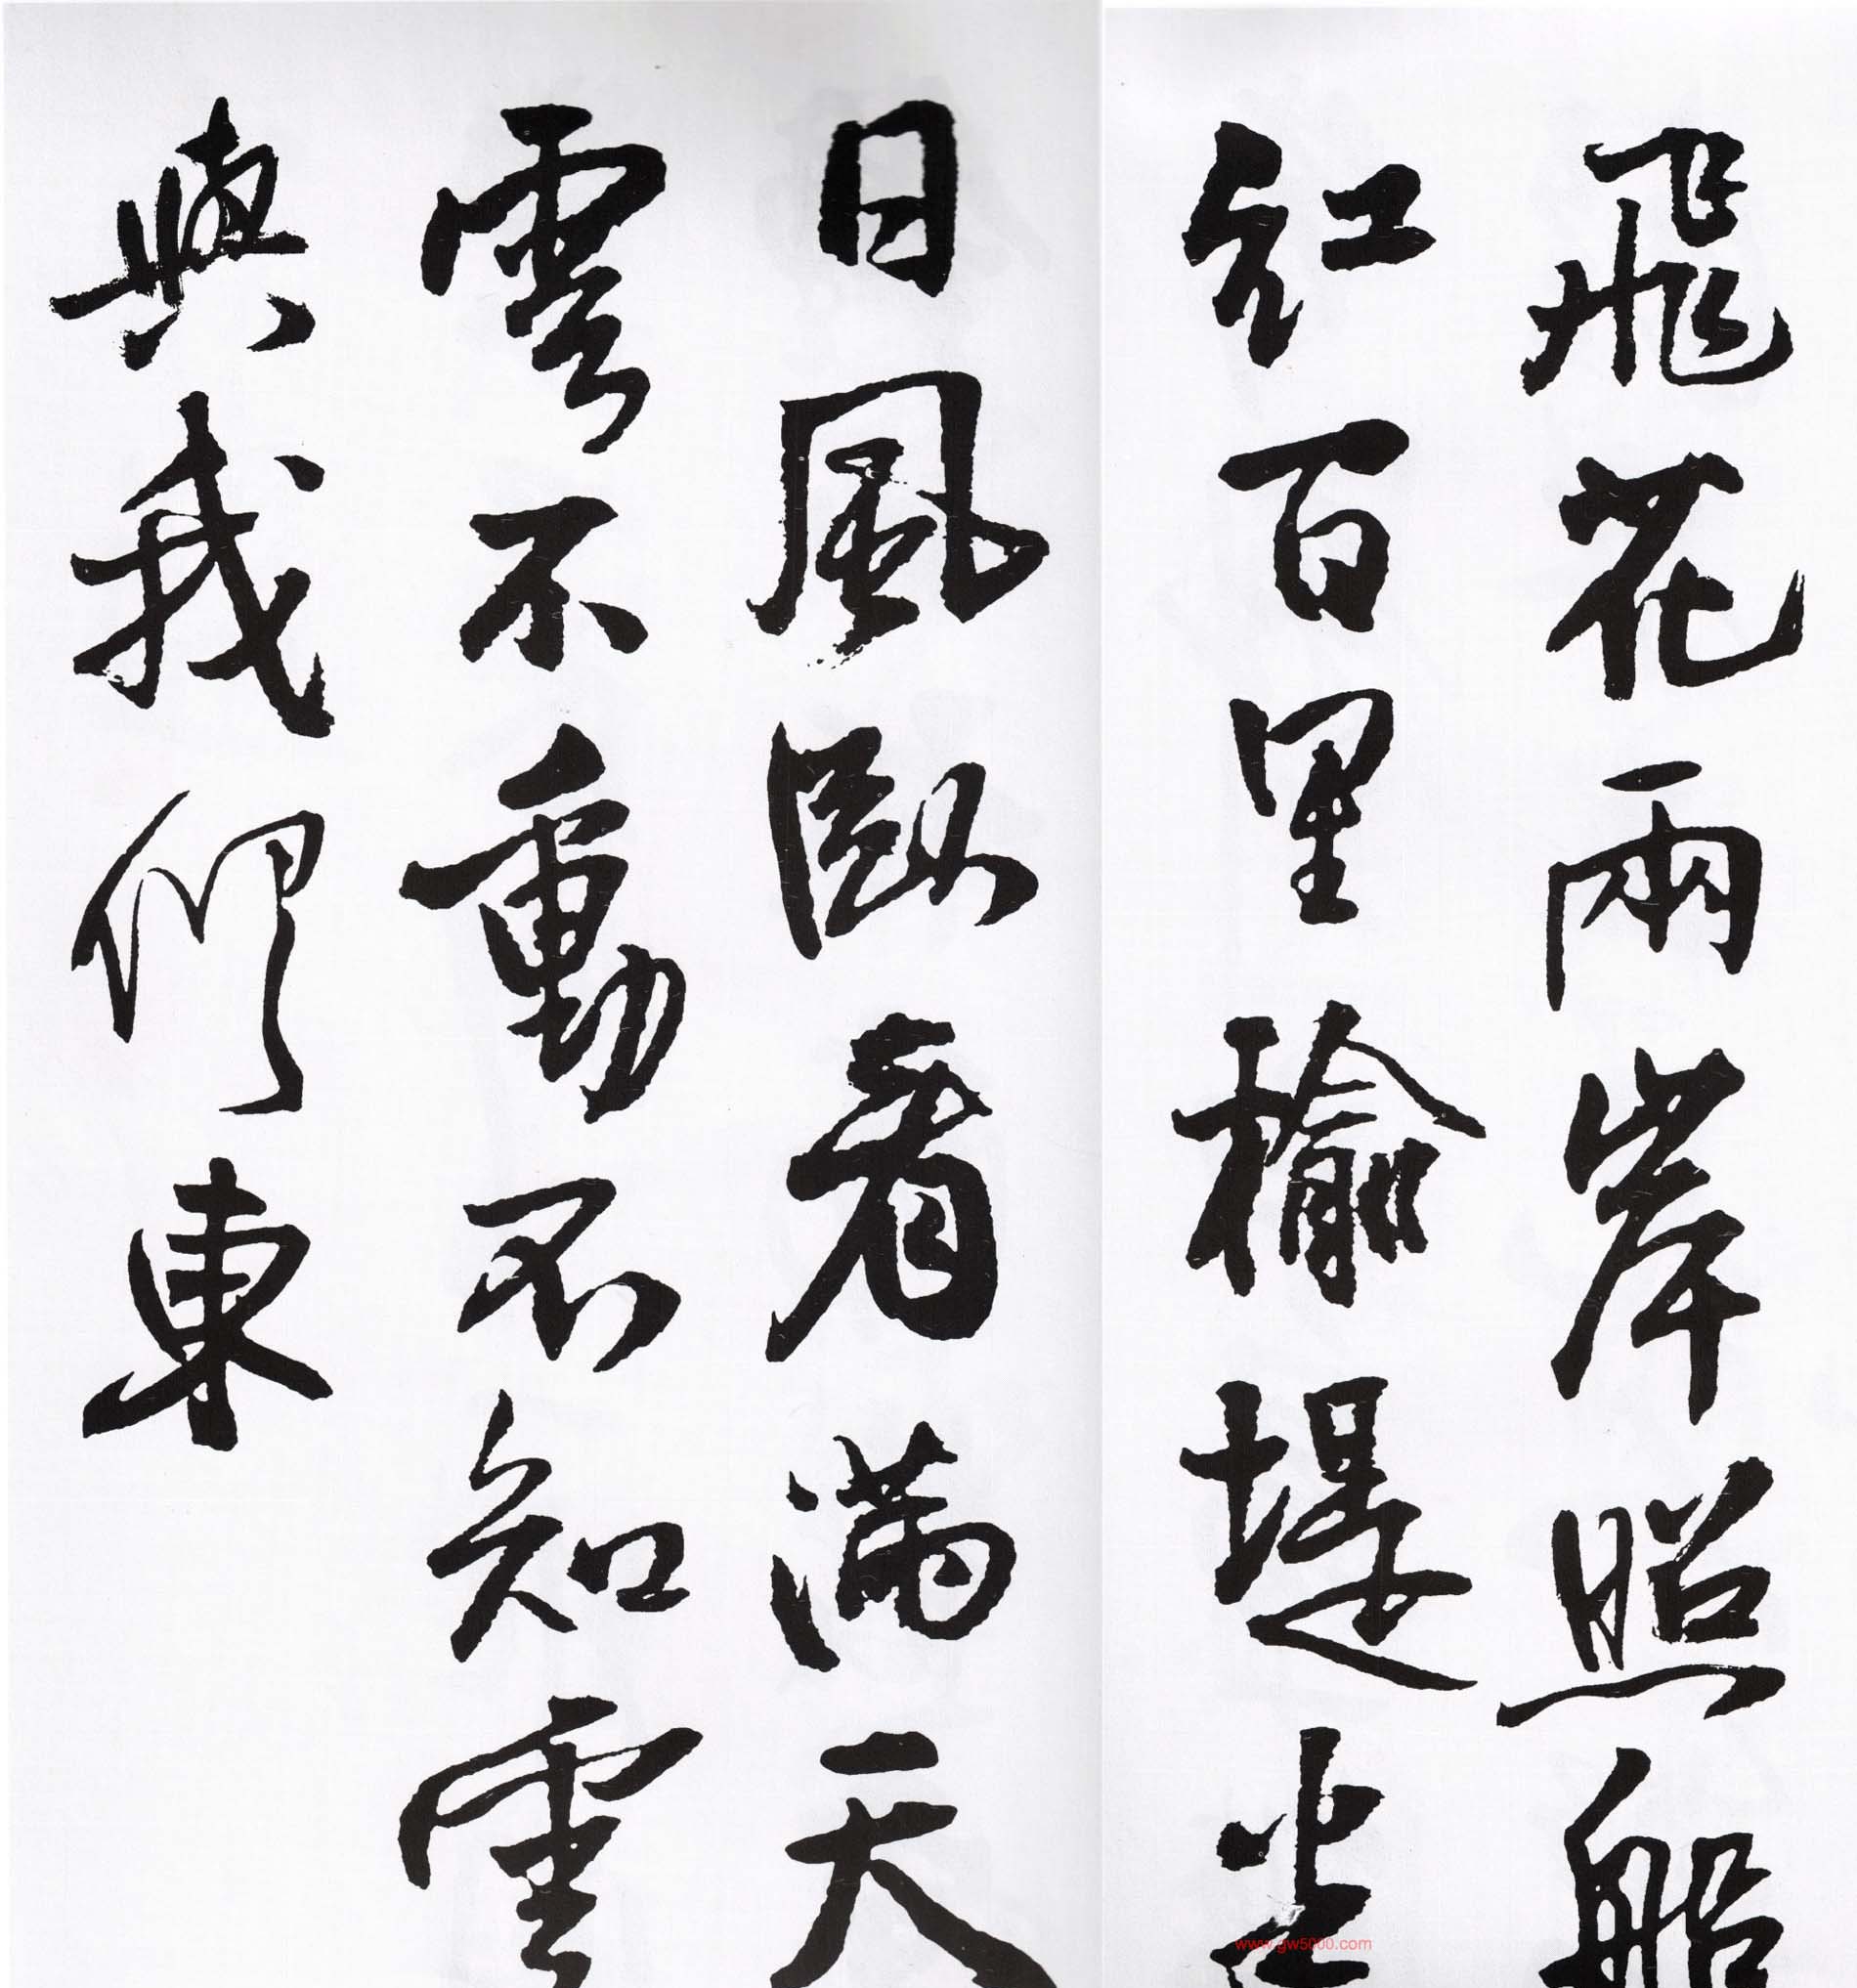 飛花兩岸照船
紅百里榆堤半
日風臥看滿天
雲不動不知雲
與我們東
www.gw5000.com